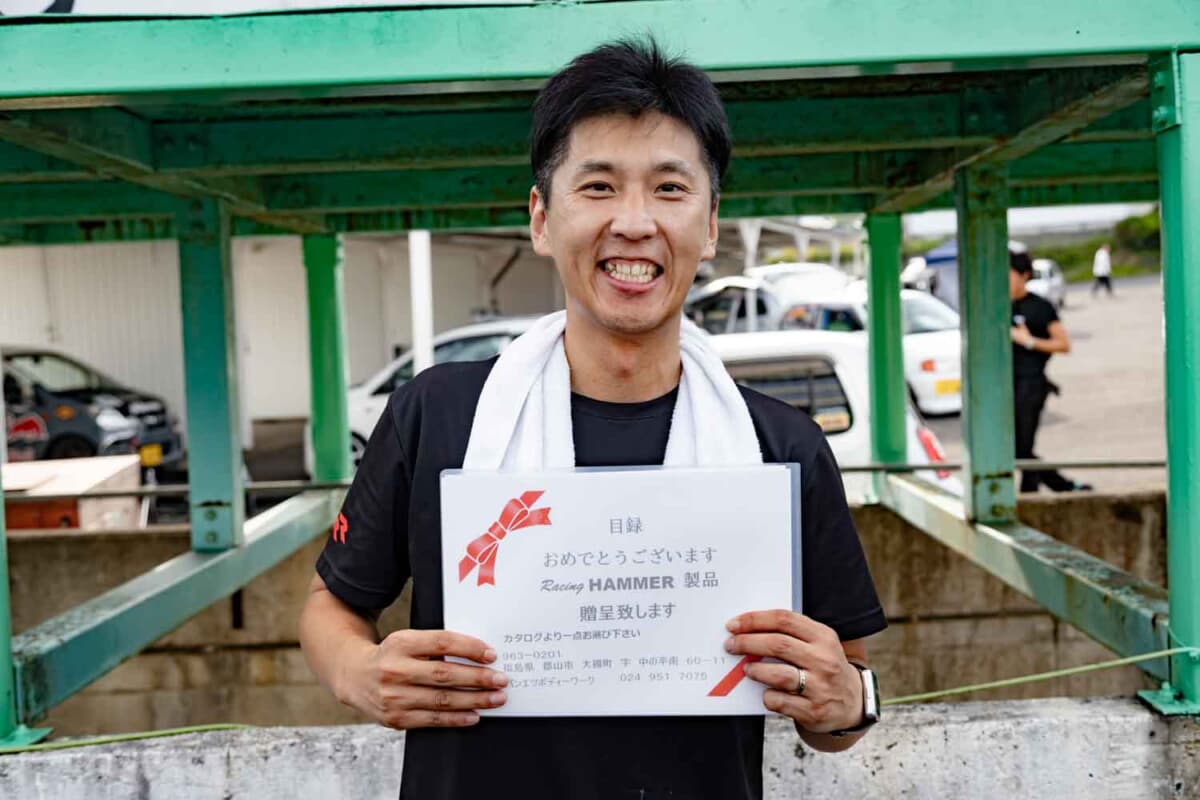 目録
おめでとうございます
Racing HAMMER 製品
贈呈致します
カタログより一点お選び下さい
963-0201
福島県 郡山市 大槻町 字 中の平南 60-11
バンエツボディーワーク 024 951 7075